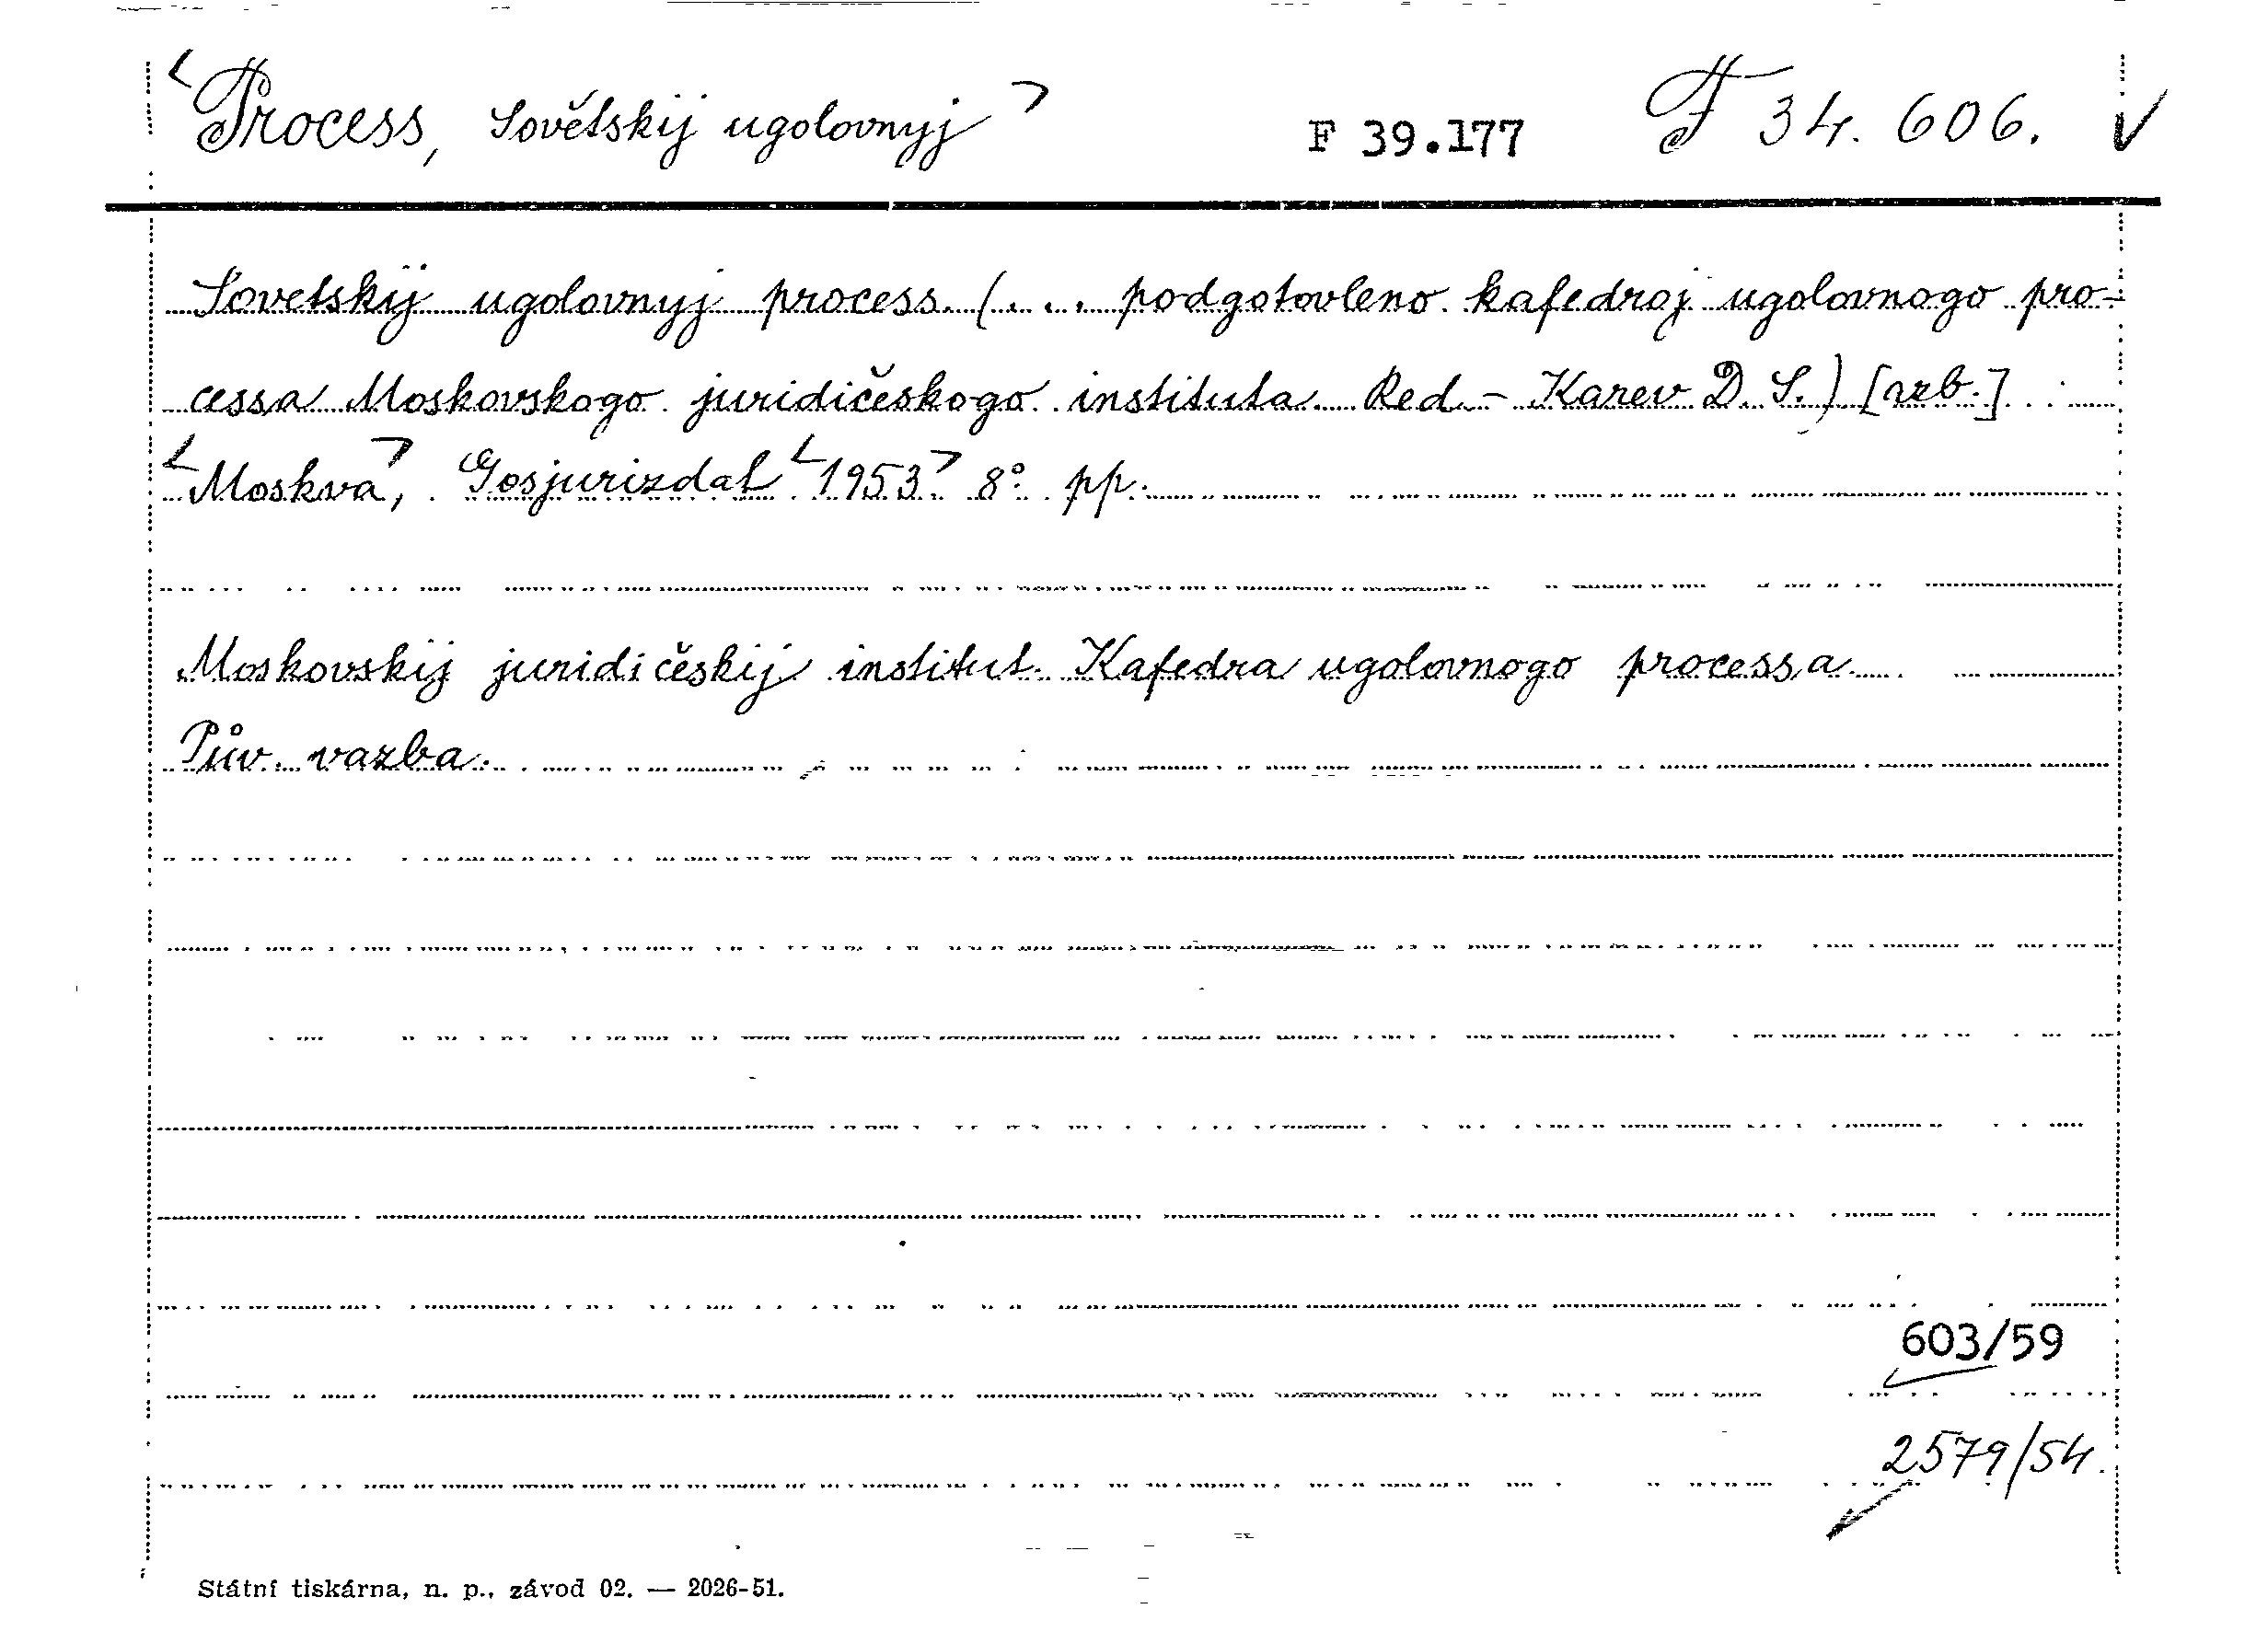 <Process, Sovětskij ugolovnyj> F 39.177 F 34.606.
Sovetskij ugolovnyj process. (... podgotovleno kafedroj ugolovnogo pro-
cessa Moskovskogo juridičeskogo instituta. Red. - Karev D. S.) [azb.]
<Moskva>, Gosjurizdat <1953> 8° pp.
Moskovskij juridičěskij institut. Kafedra ugolovnogo processa.
Pův. vazba.
603/59
2579/54.
Státní tiskárna, n. p., závod 02. — 2026-51.